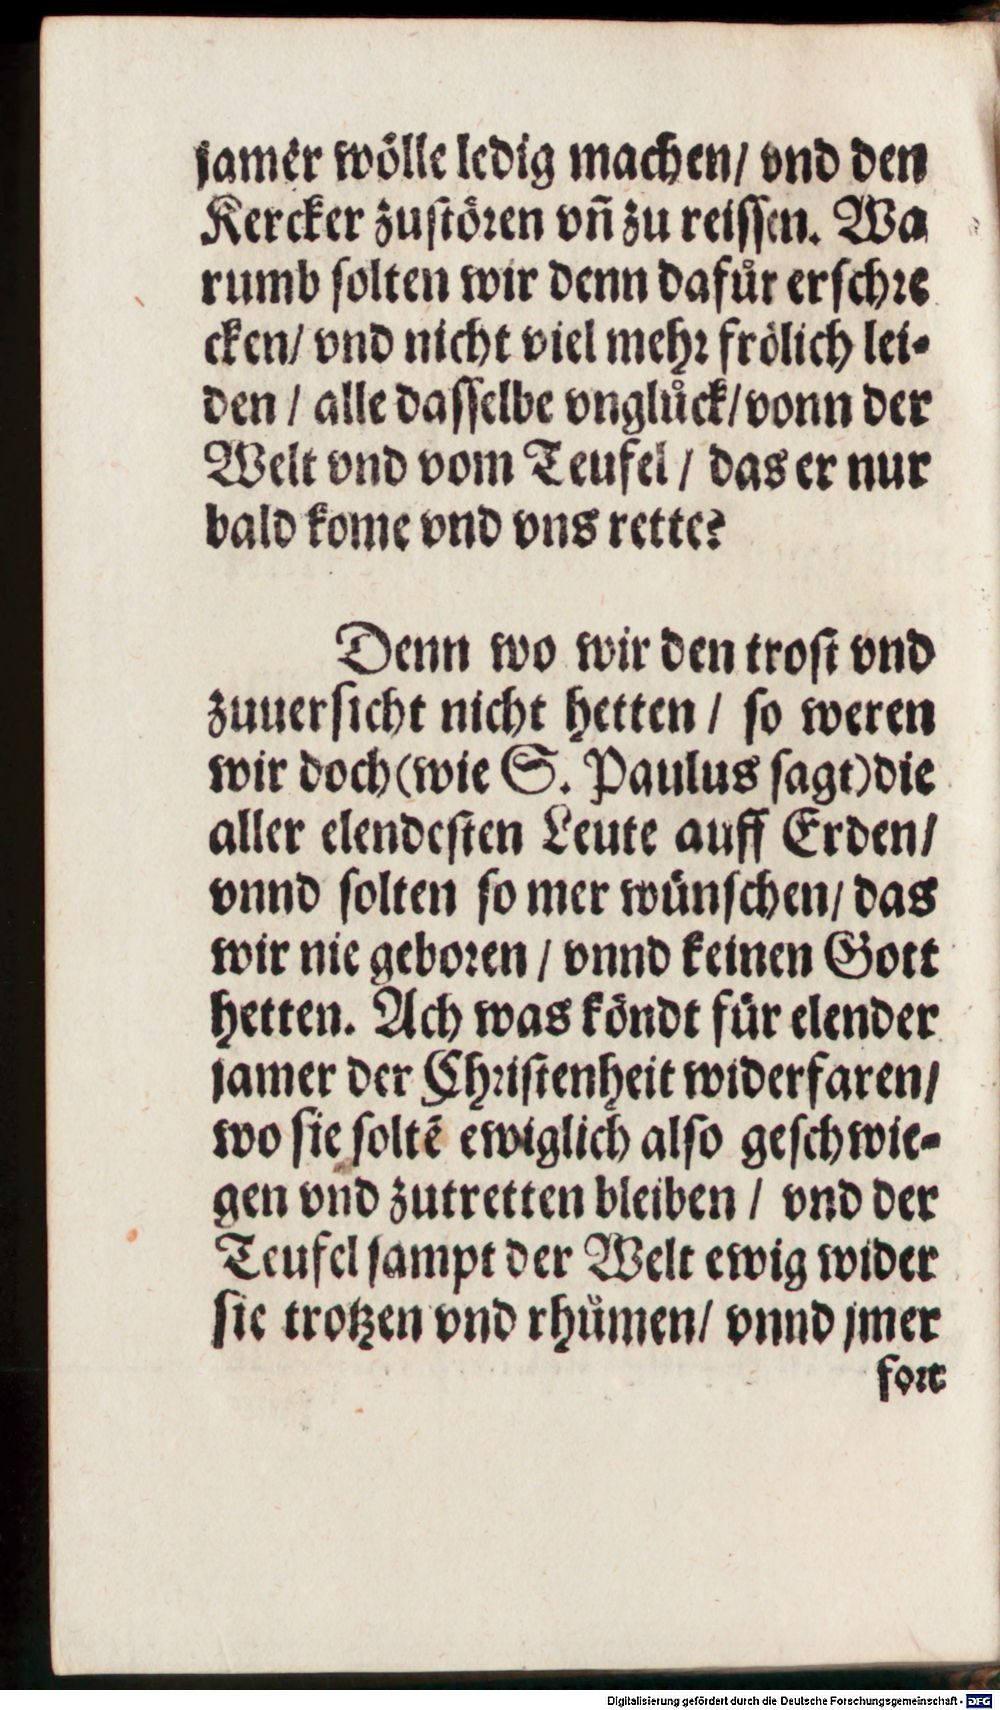 jamer wölle ledig machen/ vnd den
Kercker zustören vñ zu reissen. Wa
rumb solten wir denn dafuͤr erschre
cken/ vnd nicht viel mehr frölich lei-
den / alle dasselbe vngluͤck/ vonn der
Welt vnd vom Teufel / das er nur
bald kome vnd vns rette?
Denn wo wir den trost vnd
zuuersicht nicht hetten / so weren
wir doch (wie S. Paulus sagt) die
aller elendesten Leute auff Erden/
vnnd solten so mer wünschen/ das
wir nie geboren / vnnd keinen Gott
hetten. Ach was köndt für elender
jamer der Christenheit widerfaren/
wo sie soltē ewiglich also geschwie-
gen vnd zutretten bleiben / vnd der
Teufel sampt der Welt ewig wider
sie trotzen vnd rhuͤmen/ vnnd jmer
fort
Digitalisierung gefördert durch die Deutsche Forschungsgemeinschaft - DFG